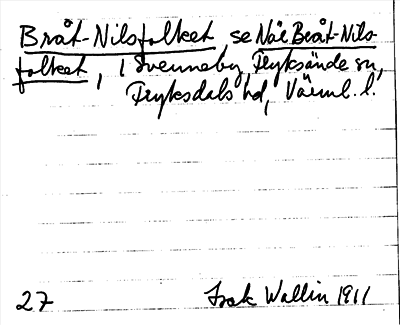 Bråt-Nilsfolket, se När Bråt-Nils-
folket, i Svenneby, Fryksände sn,
Fryksdals hd, Värml. l.
27 Isak Wallin 1911